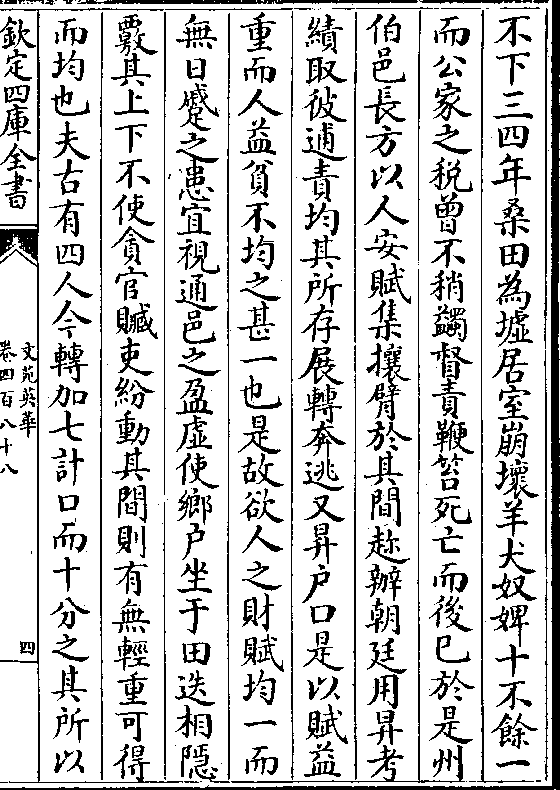 不下三四年桑田為墟居室崩壞羊犬奴婢十不餘一
而公家之税曾不稍蠲督責鞭笞死亡而後已於是州
伯邑長方以人安賦集攘臂於其間趂辦朝廷用昇考
績取彼逋責均其所存展轉奔逃又昇户口是以賦益
重而人益貧不均之甚一也是故欲人之財賦均一而
無日蹙之患宜視通邑之盈虚使鄉户坐于田迭相隱
覈其上下不使貪官贓吏紛動其間則有無輕重可得
而均也夫古有四人今轉加七計口而十分之其所以
欽定四庫全書
文苑英華
卷四百八十八
四